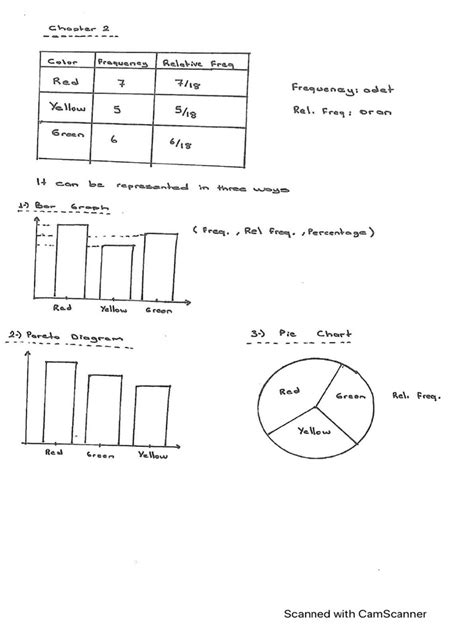 Chapter 2
Color Frequency Relative Freq
Red 7 7/18
Yellow 5 5/18
Green 6 6/18
Frequency: adet
Rel. Freq: oran
It can be represented in three ways
1-) Bar Graph
(Freq., Rel Freq., Percentage)
Red Yellow Green
2-) Pareto Diagram
Red Green Yellow
3-) Pie Chart
Red
Green
Yellow
Rel. Freq.
Scanned with CamScanner